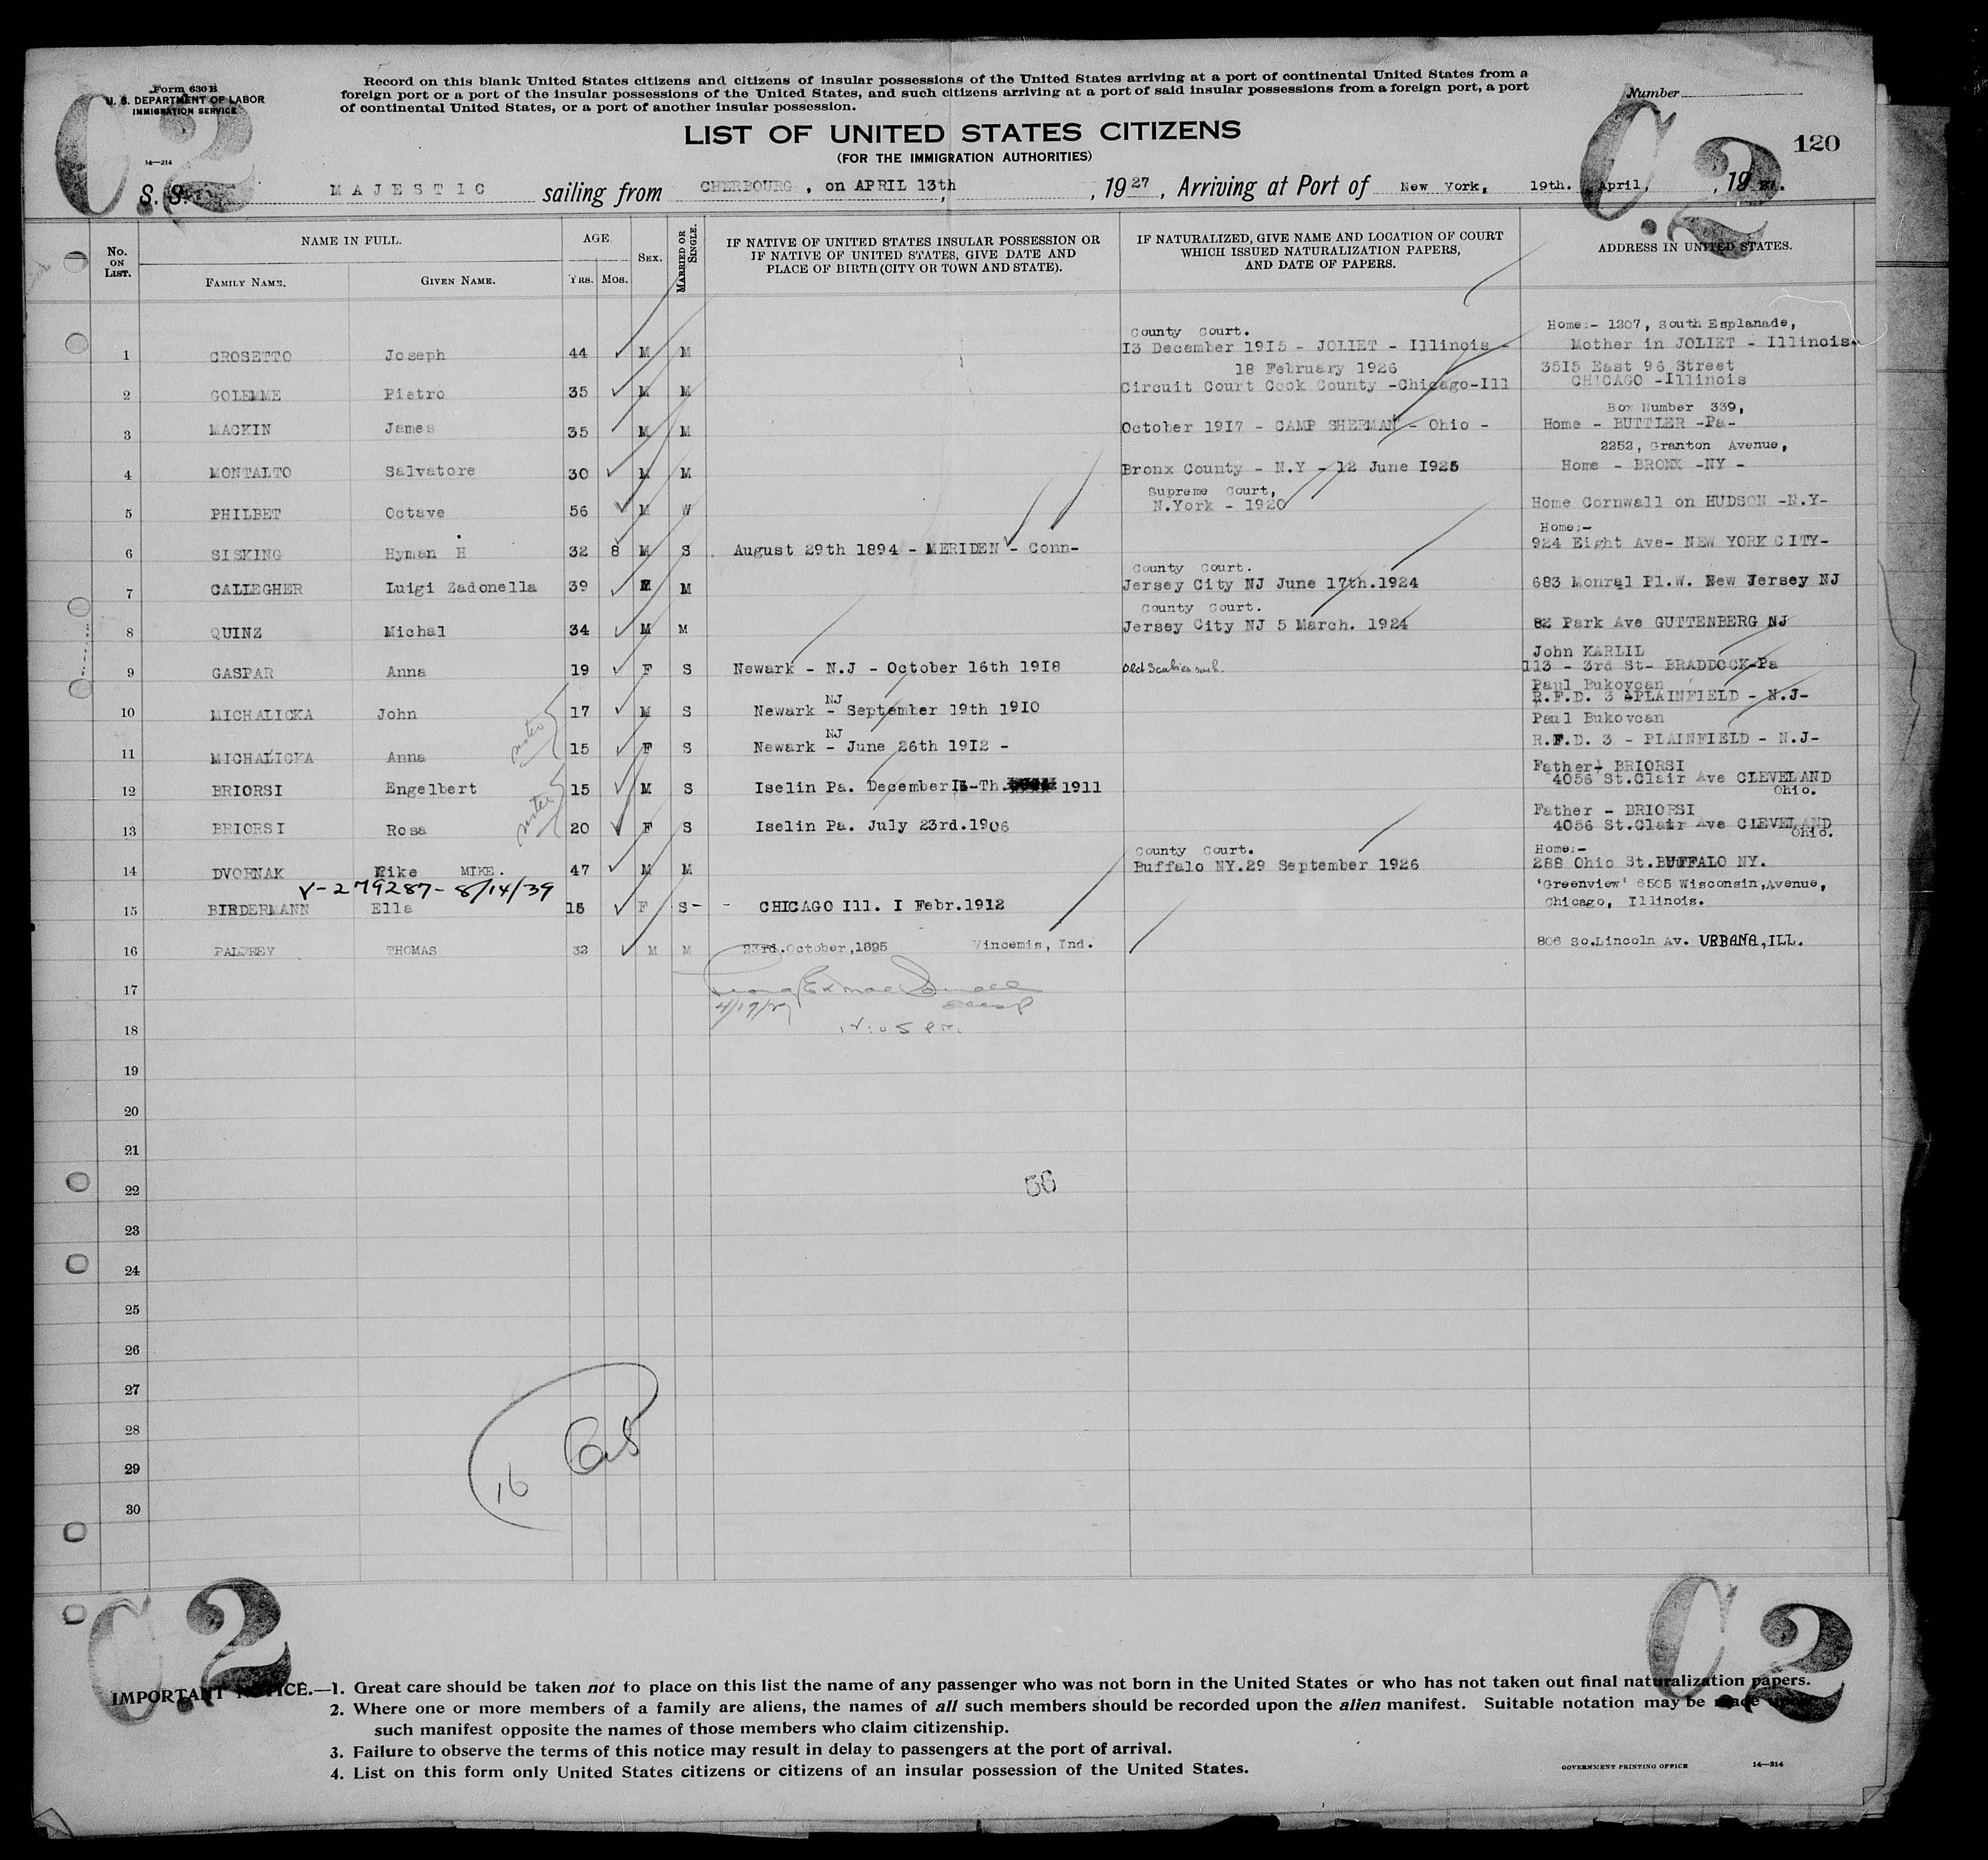 Form 630 B
U. S. DEPARTMENT OF LABOR
IMMIGRATION SERVICE
14—214
C 2
Record on this blank United States citizens and citizens of insular possessions of the United States arriving at a port of continental United States from a
foreign port or a port of the insular possessions of the United States, and such citizens arriving at a port of said insular possessions from a foreign port, a port
of continental United States, or a port of another insular possession.
Number
C. 2
120
LIST OF UNITED STATES CITIZENS
(FOR THE IMMIGRATION AUTHORITIES)
S. S. MAJESTIC sailing from CHERBOURG, on APRIL 13th, 1927, Arriving at Port of New York, 19th. April, 1927.
No. ON LIST. NAME IN FULL. FAMILY NAME. GIVEN NAME. AGE. YRS. MOS. SEX. MARRIED OR SINGLE. IF NATIVE OF UNITED STATES INSULAR POSSESSION OR IF NATIVE OF UNITED STATES, GIVE DATE AND PLACE OF BIRTH (CITY OR TOWN AND STATE). IF NATURALIZED, GIVE NAME AND LOCATION OF COURT WHICH ISSUED NATURALIZATION PAPERS, AND DATE OF PAPERS. ADDRESS IN UNITED STATES.
County Court. Home:- 1207, South Esplanade,
1 CROSETTO Joseph 44 M M 13 December 1915 - JOLIET - Illinois - Mother in JOLIET - Illinois.
18 February 1926 3515 East 96 Street
2 GOLEMME Pietro 35 M M Circuit Court Cook County -Chicago-Ill CHICAGO -Illinois
Box Number 339,
3 MACKIN James 35 M M October 1917 - CAMP SHERMAN - Ohio - Home - BUTTLER -Pa-
2252, Granton Avenue,
4 MONTALTO Salvatore 30 M M Bronx County - N.Y - 12 June 1925 Home - BRONX -NY -
Supreme Court,
5 PHILBET Octave 56 M W N.York - 1920 Home Cornwall on HUDSON -N.Y-
Home:-
6 SISKING Hyman H 32 8 M S August 29th 1894 - MERIDEN - Conn- 924 Eight Ave- NEW YORK CITY-
County Court.
7 CALLEGHER Luigi Zadonella 39 M M Jersey City NJ June 17th.1924 683 Monral Pl.W. New Jersey NJ
County Court.
8 QUINZ Michal 34 M M Jersey City NJ 5 March. 1924 82 Park Ave GUTTENBERG NJ
John KARLIL
9 GASPAR Anna 19 F S Newark - N.J - October 16th 1918 113 - 3rd St- BRADDOCK-Pa
NJ Paul Bukovcan
10 MICHALICKA John 17 M S Newark - September 19th 1910 R.F.D. 3 -PLAINFIELD - N.J-
NJ Paul Bukovcan
11 MICHALICKA Anna 15 F S Newark - June 26th 1912 - R.F.D. 3 - PLAINFIELD - N.J-
Father- BRIORSI
12 BRIORSI Engelbert 15 M S Iselin Pa. December 1911 4056 St.Clair Ave CLEVELAND
Ohio.
Father - BRIORSI
13 BRIORSI Rosa 20 F S Iselin Pa. July 23rd.1906 4056 St.Clair Ave CLEVELAND
Ohio.
County Court. Home:-
14 DVORNAK Mike MIKE. 47 M M Buffalo NY.29 September 1926 288 Ohio St.BUFFALO NY.
V-279287- 8/14/39 'Greenview' 6505 Wisconsin,Avenue,
15 BIEDERMANN Ella 15 F S- - CHICAGO Ill. I Febr.1912 Chicago, Illinois.
16 PALFREY THOMAS 32 M M 23rd.October,1895 Vincemis, Ind. 806 So.Lincoln Av. URBANA, ILL.
17
4/19/27
18
12:05 PM.
19
20
21
22 56
23
24
25
26
27
28
29
16
30
C 2
C 2
IMPORTANT NOTICE.—1. Great care should be taken not to place on this list the name of any passenger who was not born in the United States or who has not taken out final naturalization papers.
2. Where one or more members of a family are aliens, the names of all such members should be recorded upon the alien manifest. Suitable notation may be made upon
such manifest opposite the names of those members who claim citizenship.
3. Failure to observe the terms of this notice may result in delay to passengers at the port of arrival.
4. List on this form only United States citizens or citizens of an insular possession of the United States.
GOVERNMENT PRINTING OFFICE 14—214